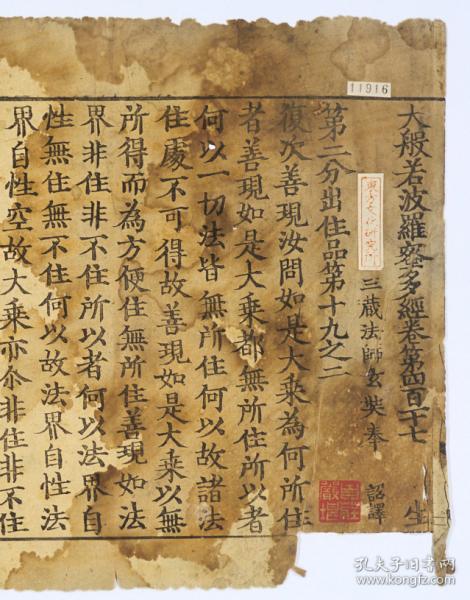 11916
大般若波羅蜜多經卷第四百一十七 生
三藏法師玄奘奉 詔譯
東方文化研究所
第二分出住品第十九之二
復次善現汝問如是大乘為何所住
者善現如是大乘都無所住所以者
何以一切法皆無所住何以故諸法
住處不可得故善現如是大乘以無
所得而為方便住無所住善現如法
界非住非不住所以者何以法界自
性無住無不住何以故法界自性法
界自性空故大乘亦尒非住非不住
孔夫子旧书网
www.kongfz.com